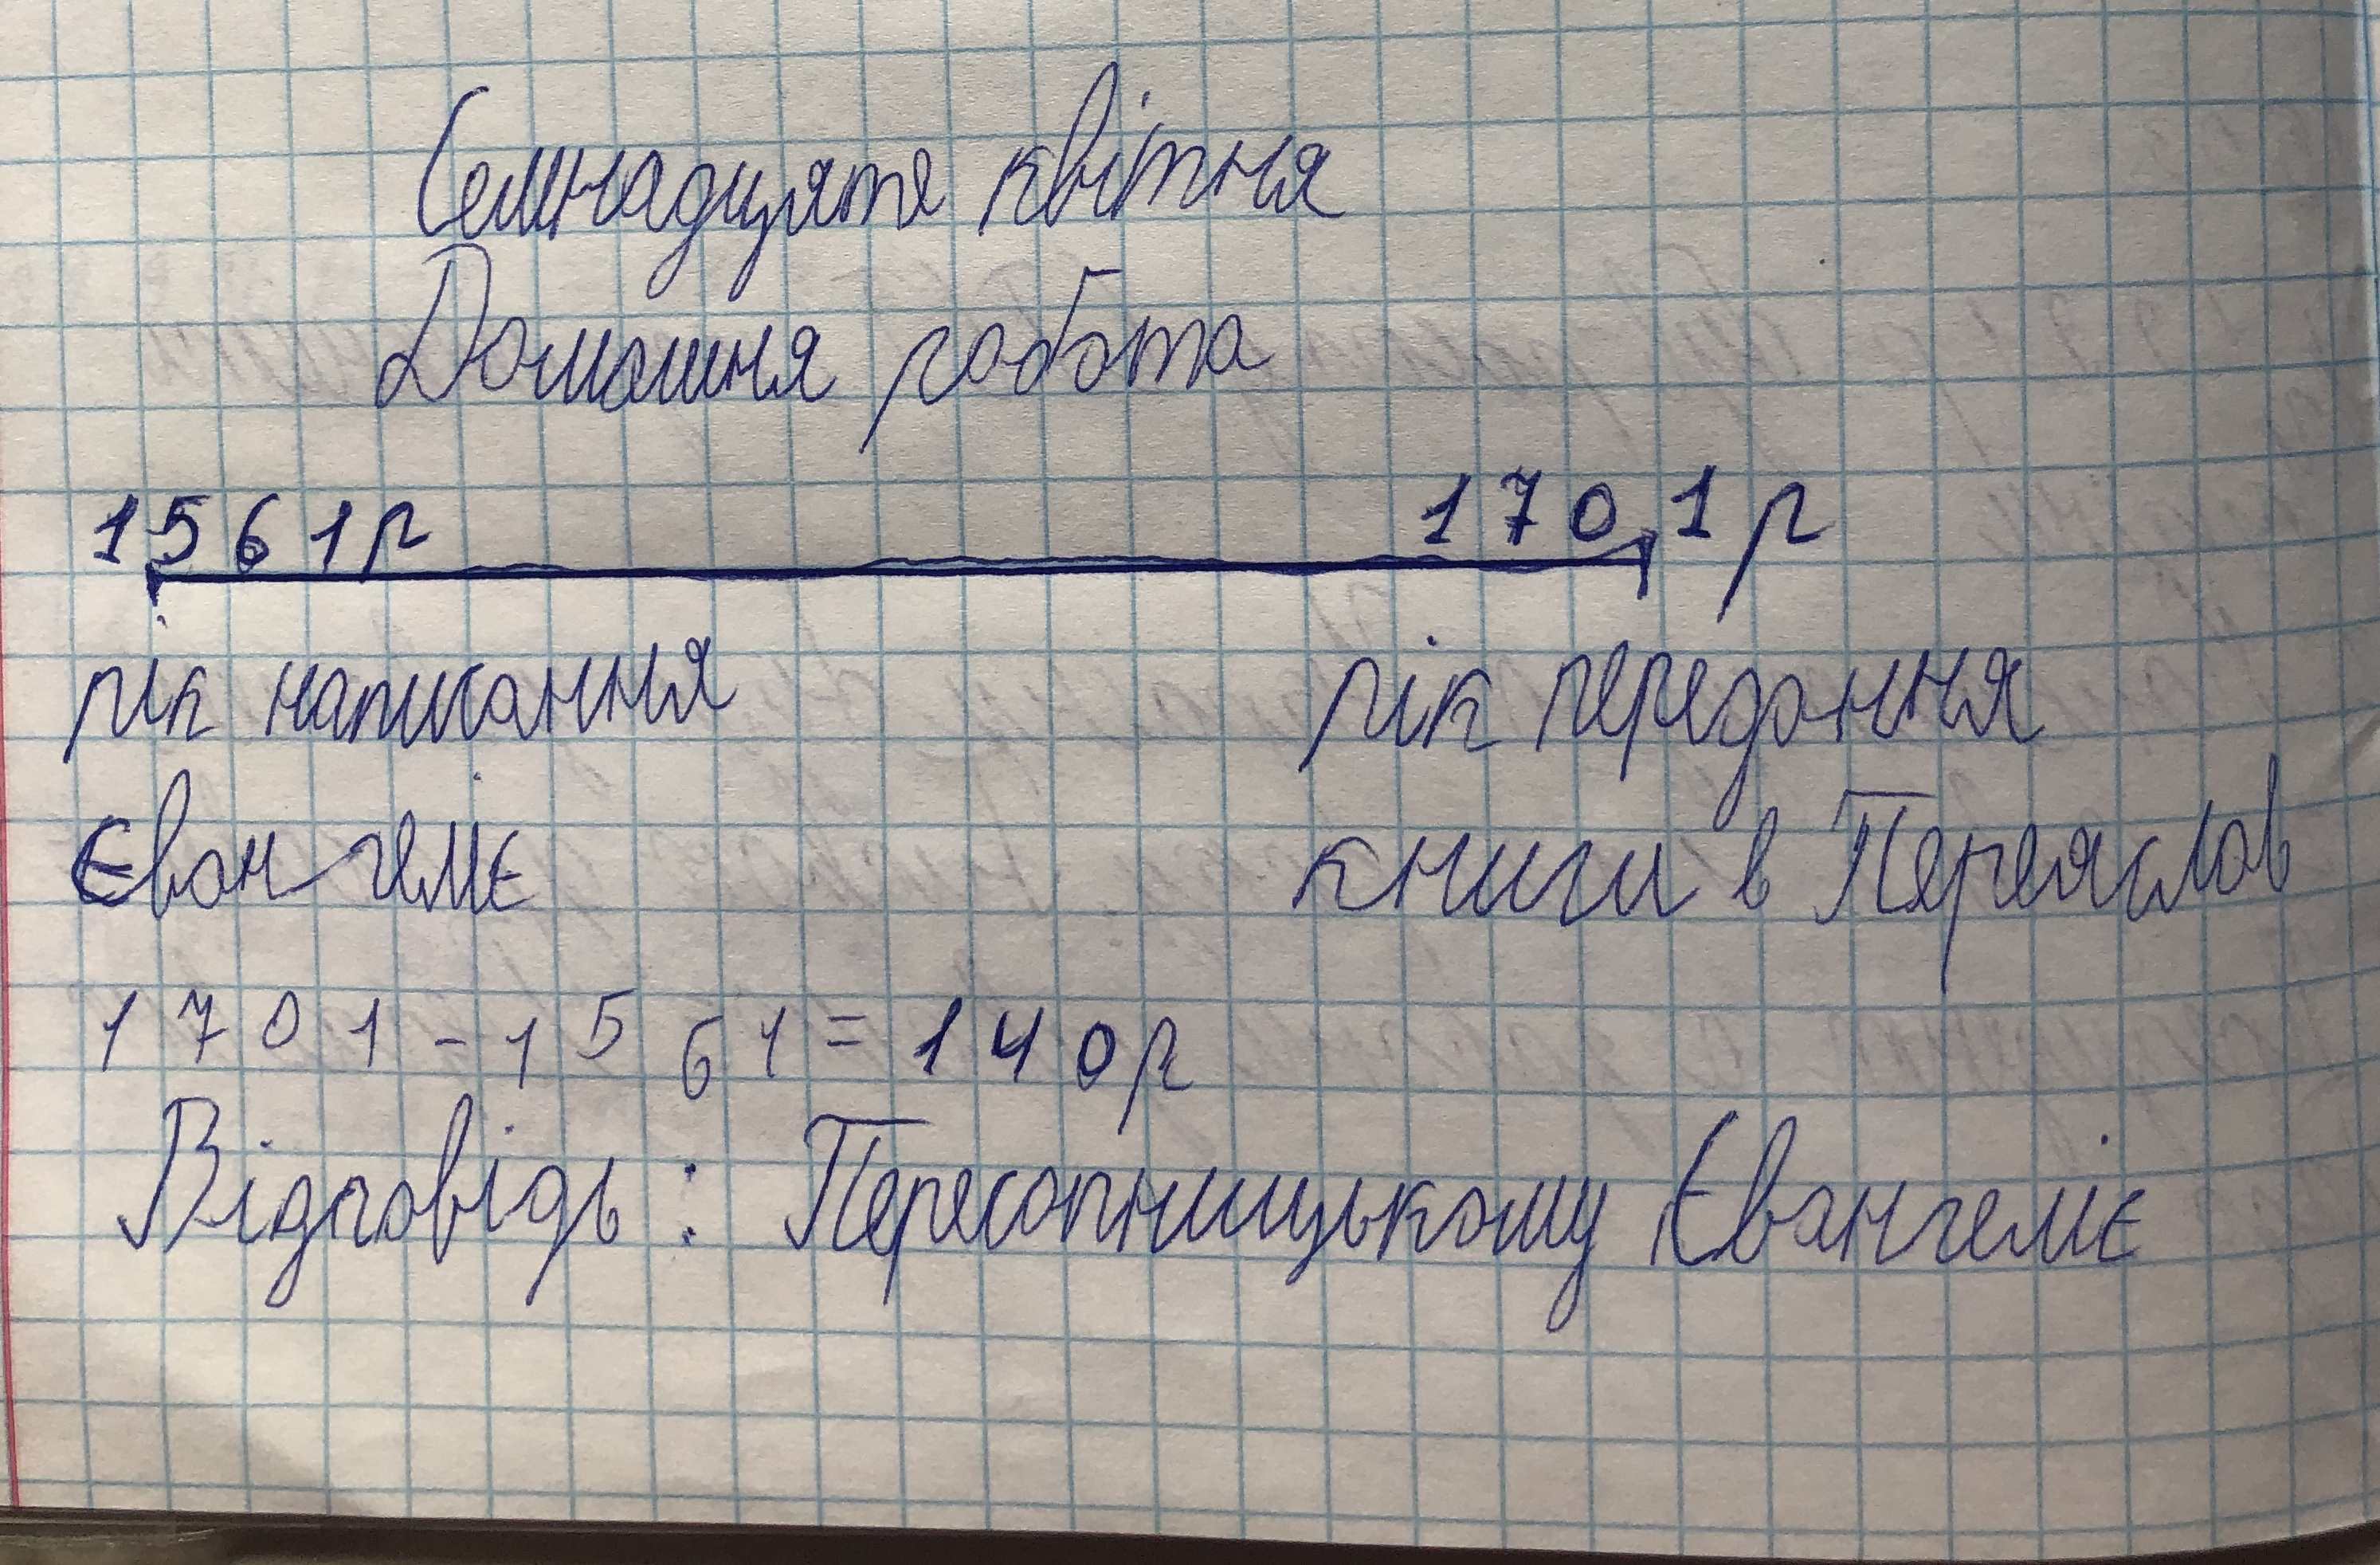 Семнадцяте квітня
Домашня робота
1561р 1701р
рік написання рік передання
Євангеліє книги в Переяслов
1701-1561=140р
Відповідь: Пересопницькому Євангеліє